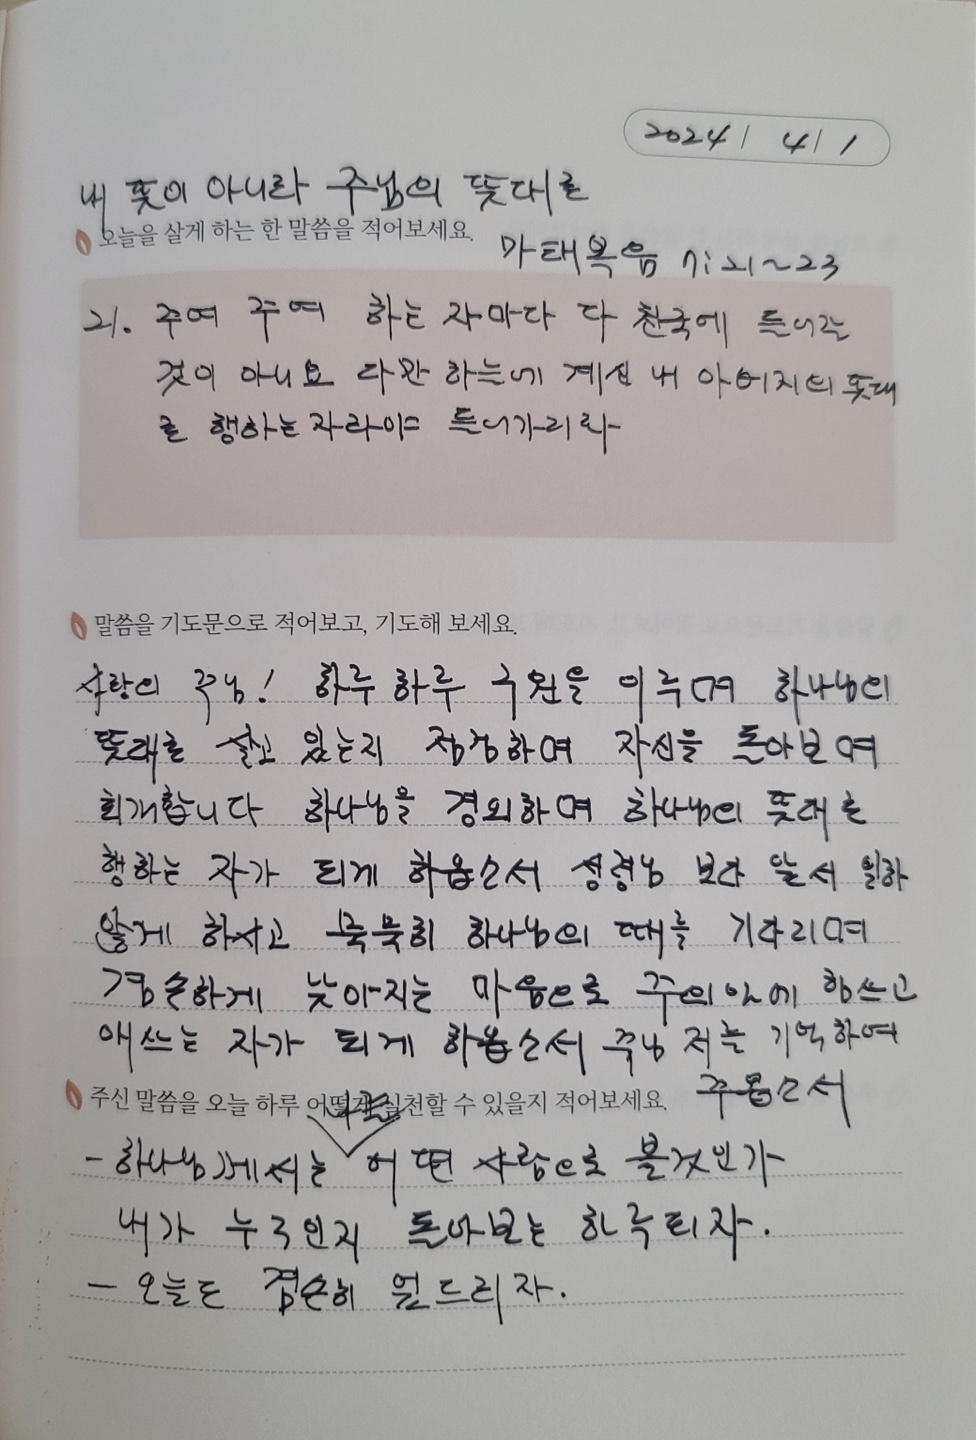 2024/ 4/ 1
내 뜻이 아니라 주님의 뜻대로
오늘을 살게 하는 한 말씀을 적어보세요.
마태복음 7:21~23
21. 주여 주여 하는 자마다 다 천국에 들어갈
것이 아니요 다만 하늘에 계신 내 아버지의 뜻대
로 행하는 자라야 들어가리라
말씀을 기도문으로 적어보고, 기도해 보세요.
사랑의 주님! 하루하루 구원을 이루며 하나님의
뜻대로 살고 있는지 점검하며 자신을 돌아보며
회개합니다 하나님을 경외하며 하나님의 뜻대로
행하는 자가 되게 하옵소서 성령님 보다 앞서 일하
않게 하시고 묵묵히 하나님의 때를 기다리며
겸손하게 낮아지는 마음으로 주의 안에 힘쓰고
애쓰는 자가 되게 하옵소서 주님 저를 기억하여
주옵소서
주신 말씀을 오늘 하루 어떻게 실천할 수 있을지 적어보세요.
나를
- 하나님께서는 어떤 사람으로 볼것인가
내가 누구인지 돌아보는 하루되자.
- 오늘도 겸손히 엎드리자.